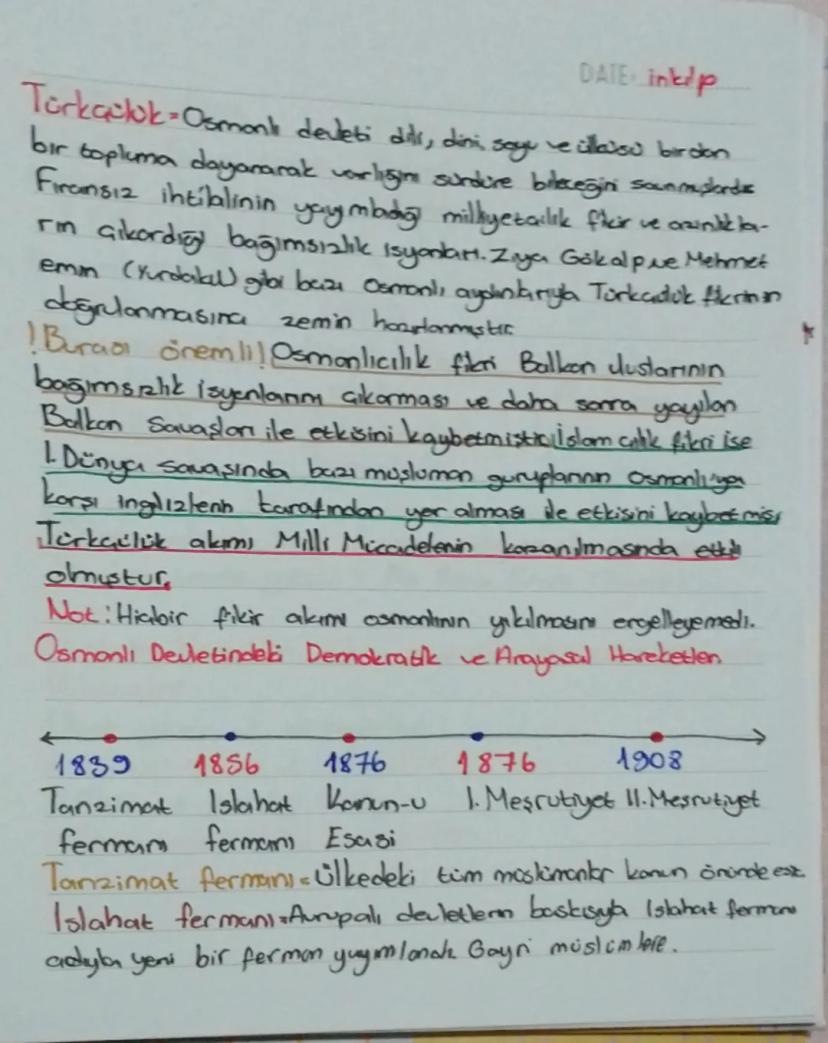 DATE: inkılp
Türkçülük = Osmanlı devleti dili, dini, soyu ve ülküsü birden
bir topluma dayanarak varlığını sürdüre bileceğini savunmuşlardır
Firansız ihtilalinin yayımladığı milliyetçilik fikir ve azınlıkla-
rın çıkardığı bağımsızlık isyanları. Ziya Gökalp ve Mehmet
emin (Yurdakul) gibi bazı Osmanlı aydınlarıyla Türkçülük fikrinin
doğrulanmasına zemin hazırlanmıştır
! Burası önemli! Osmanlıcılık fikri Balkan uluslarının
bağımsızlık isyanlarını çıkarması ve daha sonra yayılan
Balkan Savaşları ile etkisini kaybetmiştir. İslamcılık fikri ise
1. Dünya savaşında bazı müslüman gurupların Osmanlıya
karşı ingilizlerin tarafından yer alması ile etkisini kaybetmiş
Türkçülük akımı Milli Mücadelenin kazanılmasında etkili
olmuştur.
Not: Hiçbir fikir akımı osmanlının yıkılmasını engelleyemedi.
Osmanlı Devletindeki Demokratik ve Anayasal Hareketleri
1839 1856 1876 1876 1908
Tanzimat Islahat Kanun-u I. Meşrutiyet II. Meşrutiyet
fermanı fermanı Esasi
Tanzimat fermanı = Ülkedeki tüm müslümanlar kanun önünde eşit
Islahat fermanı = Avrupalı devletlerin baskısıyla Islahat fermanı
adıyla yeni bir ferman yayımlanak Gayri müslümlere.